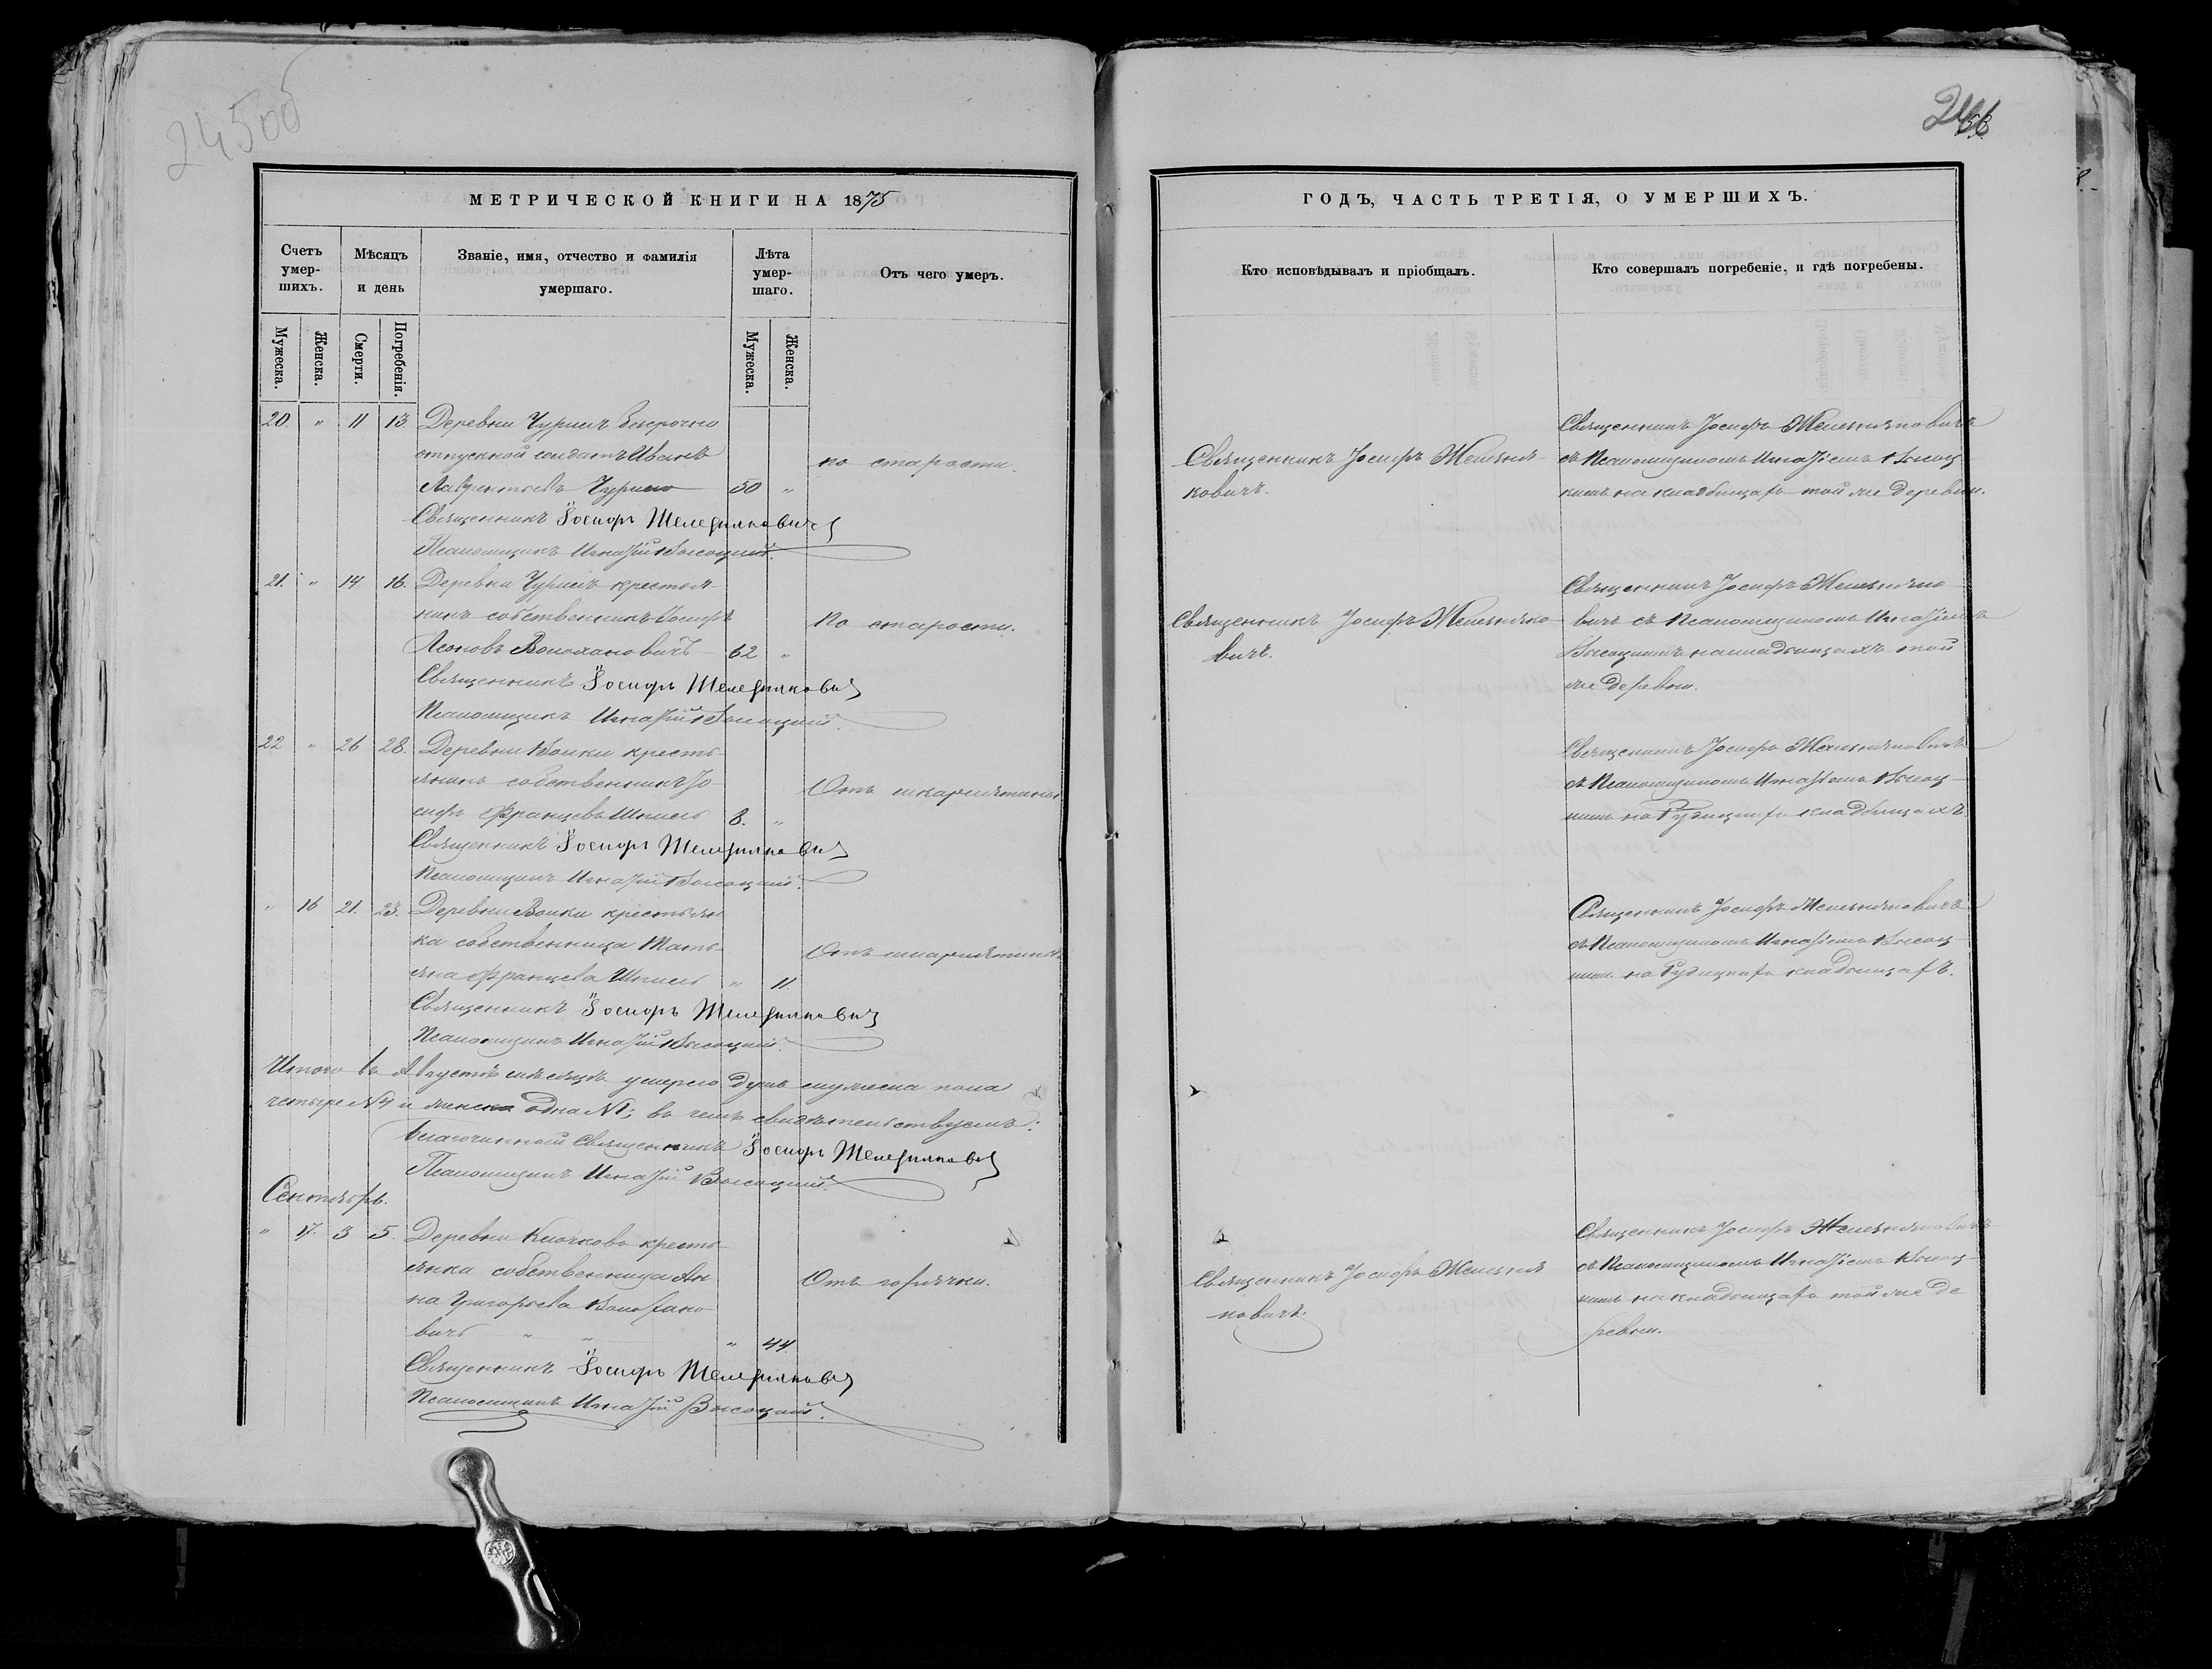 245об
МЕТРИЧЕСКОЙ КНИГИ НА 1875
Счетъ умер-шихъ.
Мѣсяцъ и день
Званіе, имя, отчество и фамилія умершаго.
Лѣта умер-шаго.
Отъ чего умеръ.
Мужеска.
Женска.
Смерти.
Погребенія.
Мужеска.
Женска.
20. " 11 13. Деревни безсрочно
отпускной солдатъ Иванъ
Лаврентьевъ 50 "
по старости.
Священникъ Іосифъ Железняковичъ
Псаломщикъ Игнатій Высоцкій.
21. " 14 16. Деревни крестья-
нинъ собственникъ Іосифъ
Леоновъ 62 "
По старости.
Священникъ Іосифъ Железняковичъ
Псаломщикъ Игнатій Высоцкій
22 " 26 28. Деревни Волки кресть-
янинъ собственникъ Іо-
сифъ Францевъ 8. "
Отъ шкарлятины
Священникъ Іосифъ Железняковичъ
Псаломщикъ Игнатій Высоцкій.
" 16 21. 23. Деревни Волки крестьян-
ка собственница Тать-
яна Францева " 11.
Отъ шкарлятины
Священникъ Іосифъ Железняковичъ
Псаломщикъ Игнатій Высоцкій.
Итого въ Августѣ мѣсяцѣ умерло душъ мужеска пола
четыре №4 и женска одна №1; въ чемъ свидѣтельствуемъ:
Благочинный Священникъ Іосифъ Железняковичъ
Псаломщикъ Игнатій Высоцкій.
Сентябрь.
" 17. 3 5. Деревни Клочково кресть-
янка собственница Ан-
на Григорьева
вичъ " " " 44.
Отъ горячки.
Священникъ Іосифъ Железняковичъ
Псаломщикъ Игнатій Высоцкій.
ГОДЪ, ЧАСТЬ ТРЕТІЯ, О УМЕРШИХЪ.
Кто исповѣдывалъ и пріобщалъ.
Кто совершалъ погребеніе, и гдѣ погребены.
Священникъ Іосифъ Железня-
ковичъ.
Священникъ Іосифъ Железняковичъ
съ Псаломщикомъ Игнатіемъ Высоц-
кимъ на кладбищахъ той же деревни.
Священникъ Іосифъ Железняко-
вичъ.
Священникъ Іосифъ Железняко-
вичъ съ Псаломщикомъ Игнатіемъ
Высоцкимъ на кладбищахъ той
же деревни.
Священникъ Іосифъ Железняковичъ
съ Псаломщикомъ Игнатіемъ Высоц-
кимъ на кладбищахъ.
Священникъ Іосифъ Железняковичъ
съ Псаломщикомъ Игнатіемъ Высоц-
кимъ на кладбищахъ.
Священникъ Іосифъ Железня-
ковичъ.
Священникъ Іосифъ Железняковичъ
съ Псаломщикомъ Игнатіемъ Высоц-
кимъ на кладбищахъ той же де-
ревни.